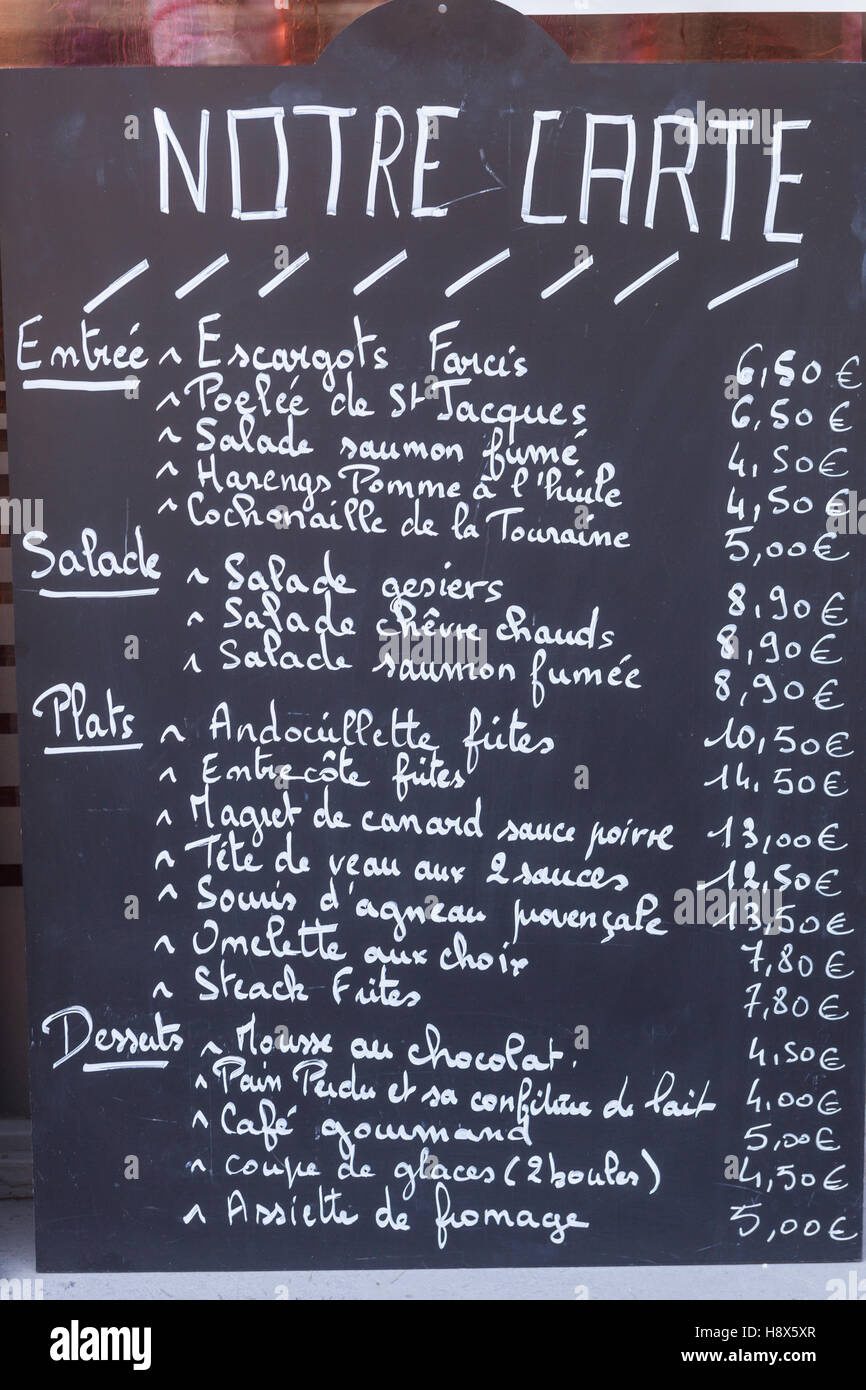 NOTRE CARTE
Entrée ~ Escargots Farcis 6,50 €
~ Poelée de St Jacques 6,50 €
~ Salade saumon fumé 4,50 €
~ Harengs Pomme à l'huile 4,50 €
~ Cochonaille de la Touraine 5,00 €
Salade ~ Salade gesiers 8,90 €
~ Salade chêvre chauds 8,90 €
~ Salade saumon fumée 8,90 €
Plats ~ Andouillette frites 10,50 €
~ Entrecôte frites 14,50 €
~ Magret de canard sauce poivre 13,00 €
~ Tête de veau aux 2 sauces 12,50 €
~ Souris d'agneau provençale 13,50 €
~ Omelette aux choix 7,80 €
~ Steack Frites 7,80 €
Desserts ~ Mousse au chocolat. 4,50 €
~ Pain Perdu et sa confiture de lait 4,00 €
~ Café gourmand 5,00 €
~ coupe de glaces (2 boules) 4,50 €
~ Assiette de fromage 5,00 €
alamy
Image ID: H8X5XR
www.alamy.com